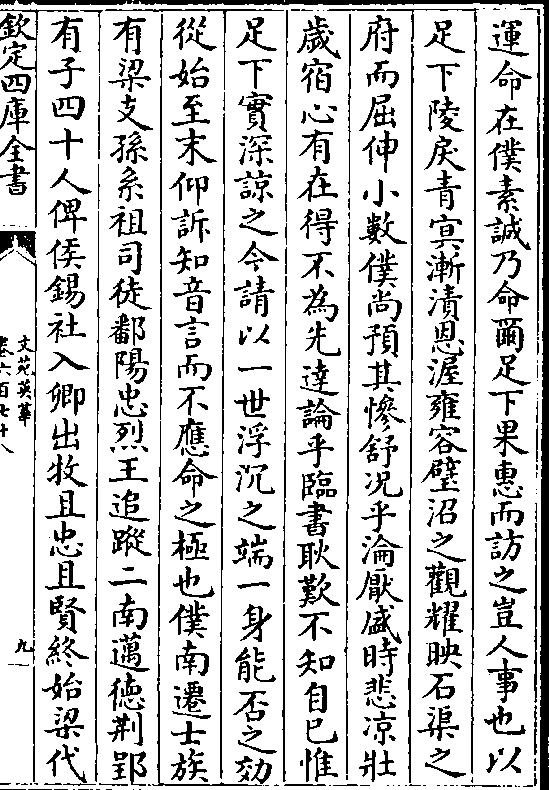 運命在僕素誠乃命爾足下果惠而訪之豈人事也以
足下陵戾青㝠漸漬恩渥雍容璧沼之觀耀映石渠之
府而屈伸小數僕尚預其慘舒况乎淪厭盛時悲凉壯
歲宿心有在得不為先達論乎臨書耿歎不知自已惟
足下實深諒之今請以一世浮沉之端一身能否之效
從始至末仰訴知音言而不應命之極也僕南遷士族
有梁支孫系祖司徒鄱陽忠烈王追蹤二南邁徳荆郢
有子四十人俾侯錫社入卿出牧且忠且賢終始梁代
欽定四庫全書
文苑英華
卷六百七十八
九